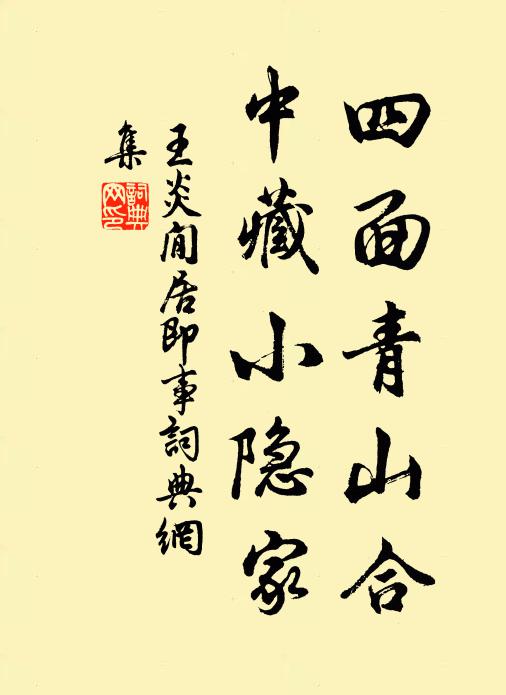 四面青山合
中藏小隐家
王炎閒居即事詞典網
集
詞典
网印